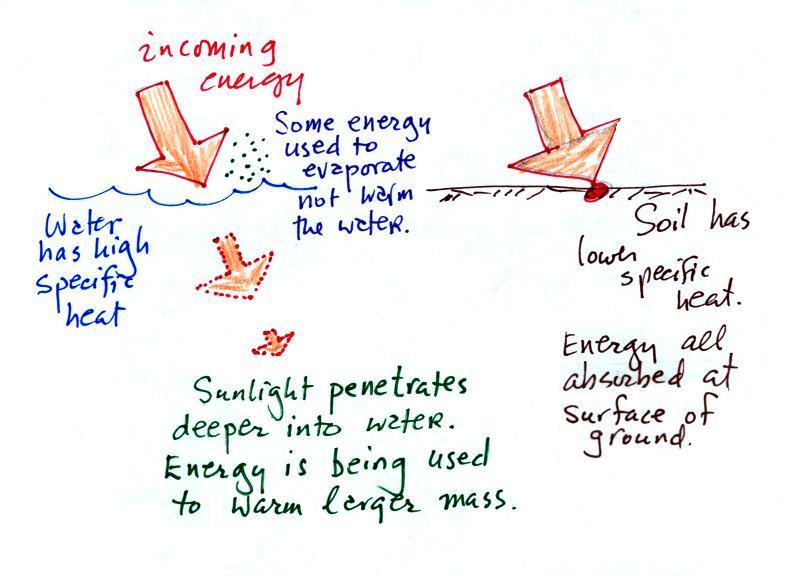 incoming
energy
Some energy
used to
evaporate
not warm
the water.
Water
has high
specific
heat
Sunlight penetrates
deeper into water.
Energy is being used
to warm larger mass.
Soil has
lower
specific
heat.
Energy all
absorbed at
surface of
ground.